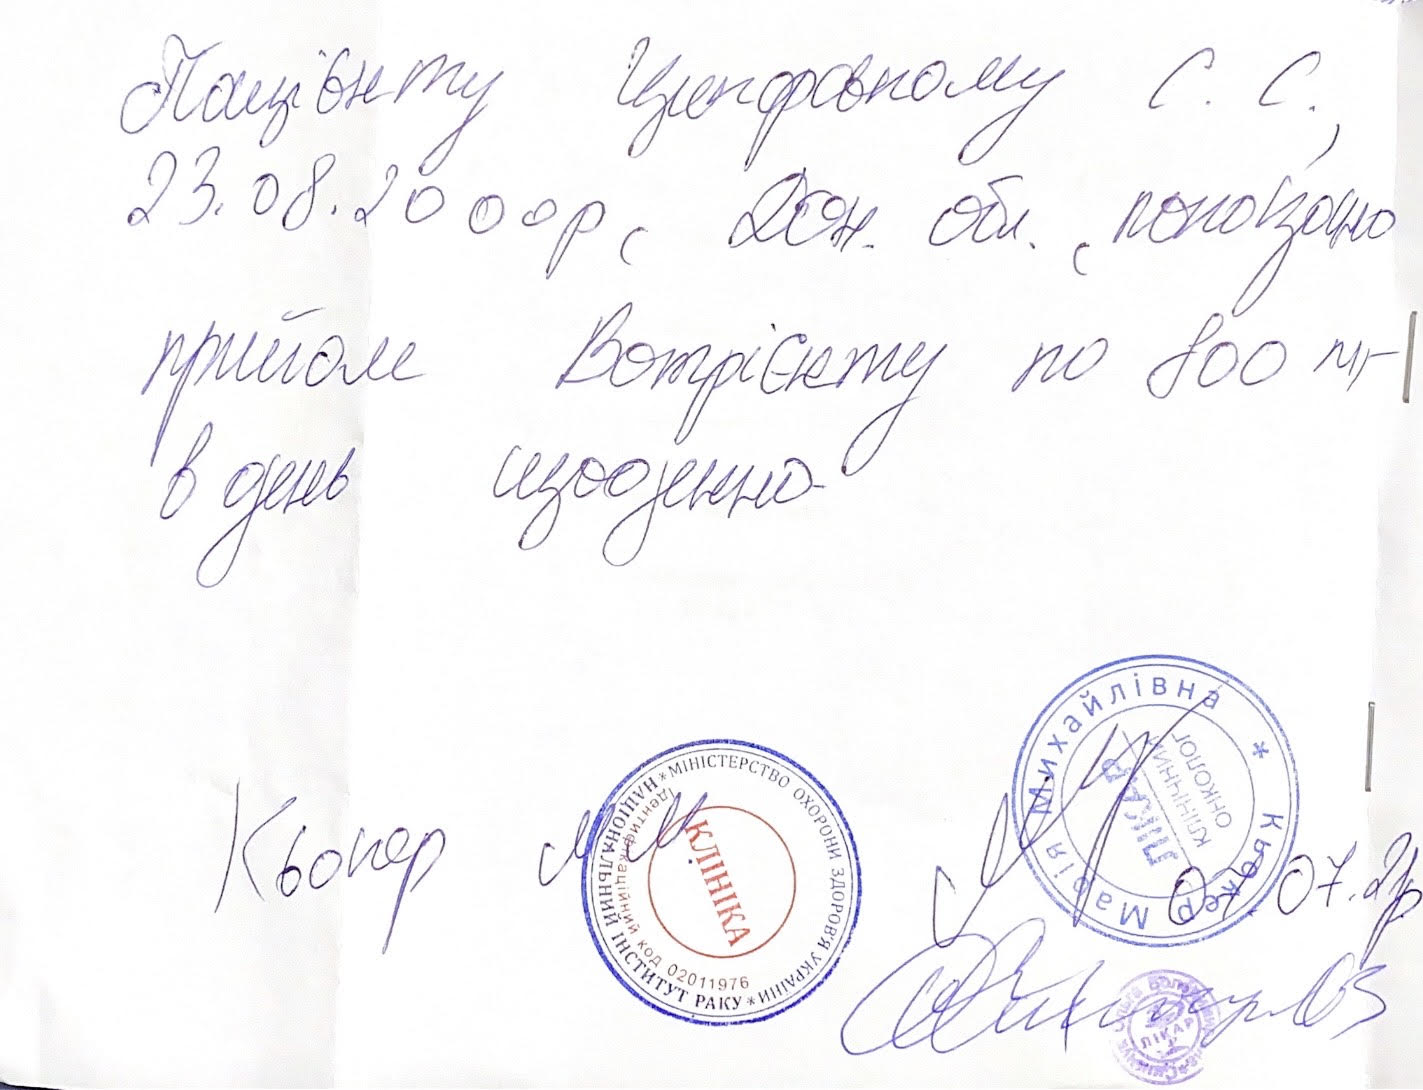 Пацієнту С. С.,
23.08.2000р, Дон. обл., показано
прийом Вотрієнту по 800 мг
в день щоденно.
Кьокер М М
* МІНІСТЕРСТВО ОХОРОНИ ЗДОРОВ'Я УКРАЇНИ * НАЦІОНАЛЬНИЙ ІНСТИТУТ РАКУ
Ідентифікаційний код 02011976
КЛІНІКА
* Кьокер Марія Михайлівна
КЛІНІЧНИЙ
ОНКОЛОГ
07.21р
ЛІКАР